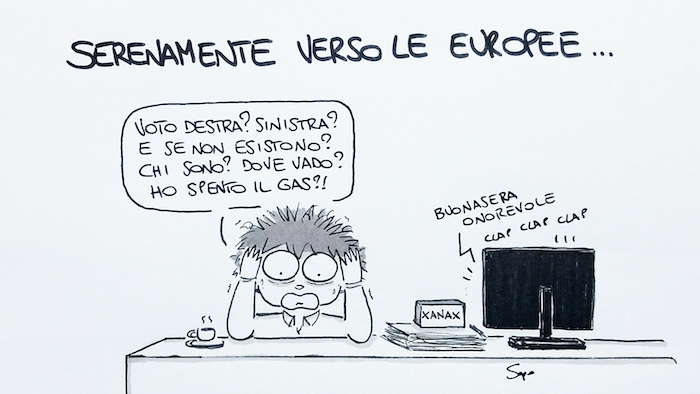 SERENAMENTE VERSO LE EUROPEE...
VOTO DESTRA? SINISTRA?
E SE NON ESISTONO?
CHI SONO? DOVE VADO?
HO SPENTO IL GAS?!
BUONASERA
ONOREVOLE
CLAP CLAP CLAP
XANAX